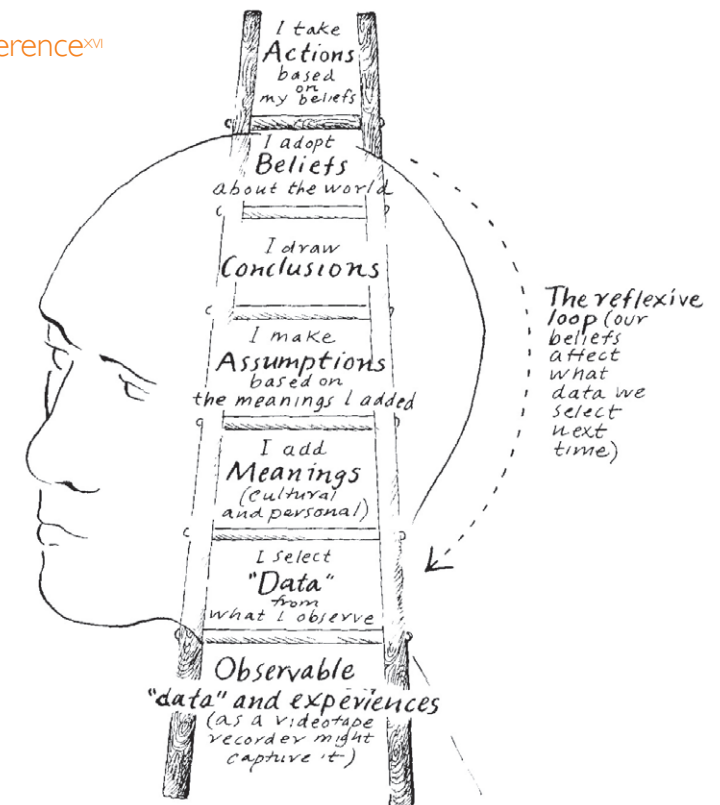 erence^XVI
I take
Actions
based
on
my beliefs
I adopt
Beliefs
about the world
I draw
Conclusions
I make
Assumptions
based on
the meanings I added
I add
Meanings
(cultural
and personal)
I select
"Data"
from
what I observe
Observable
"data" and experiences
(as a videotape
recorder might
capture it)
The reflexive
loop (our
beliefs
affect
what
data we
select
next
time)